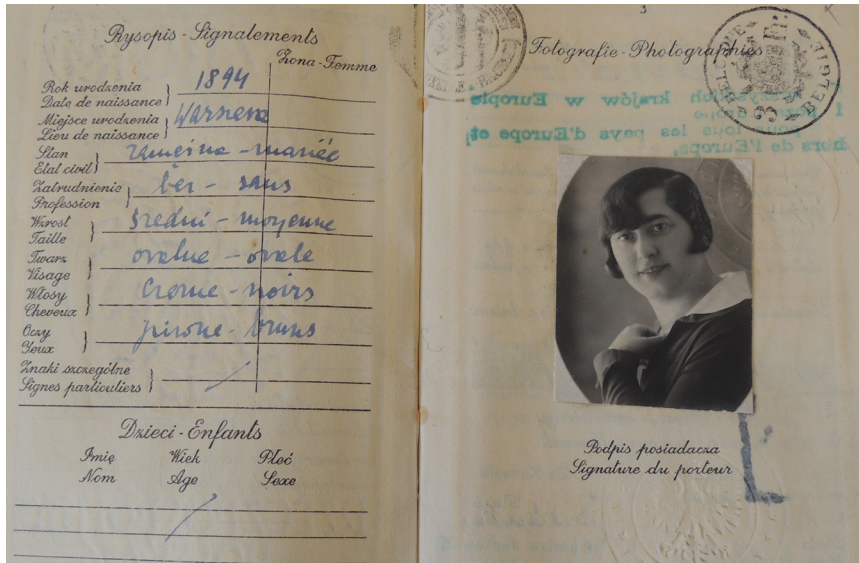 Rysopis - Signalements
Żona - Femme
Rok urodzenia
Date de naissance } 1894
Miejsce urodzenia
Lieu de naissance } Warszawa
Stan
Etat civil } zamężna - mariée
Zatrudnienie
Profession } bez - sans
Wzrost
Taille } średni - moyenne
Twarz
Visage } owalne - ovale
Włosy
Cheveux } czarne - noirs
Oczy
Yeux } piwne - bruns
Znaki szczególne
Signes particuliers }
Dzieci - Enfants
Imię Wiek Płeć
Nom Age Sexe
3
Fotografie - Photographies
BELGIQUE
BELGIE
3 Fr
wszystkich krajów w Europie
Europe
pour tous les pays d'Europe et
hors de l'Europe,
Podpis posiadacza
Signature du porteur